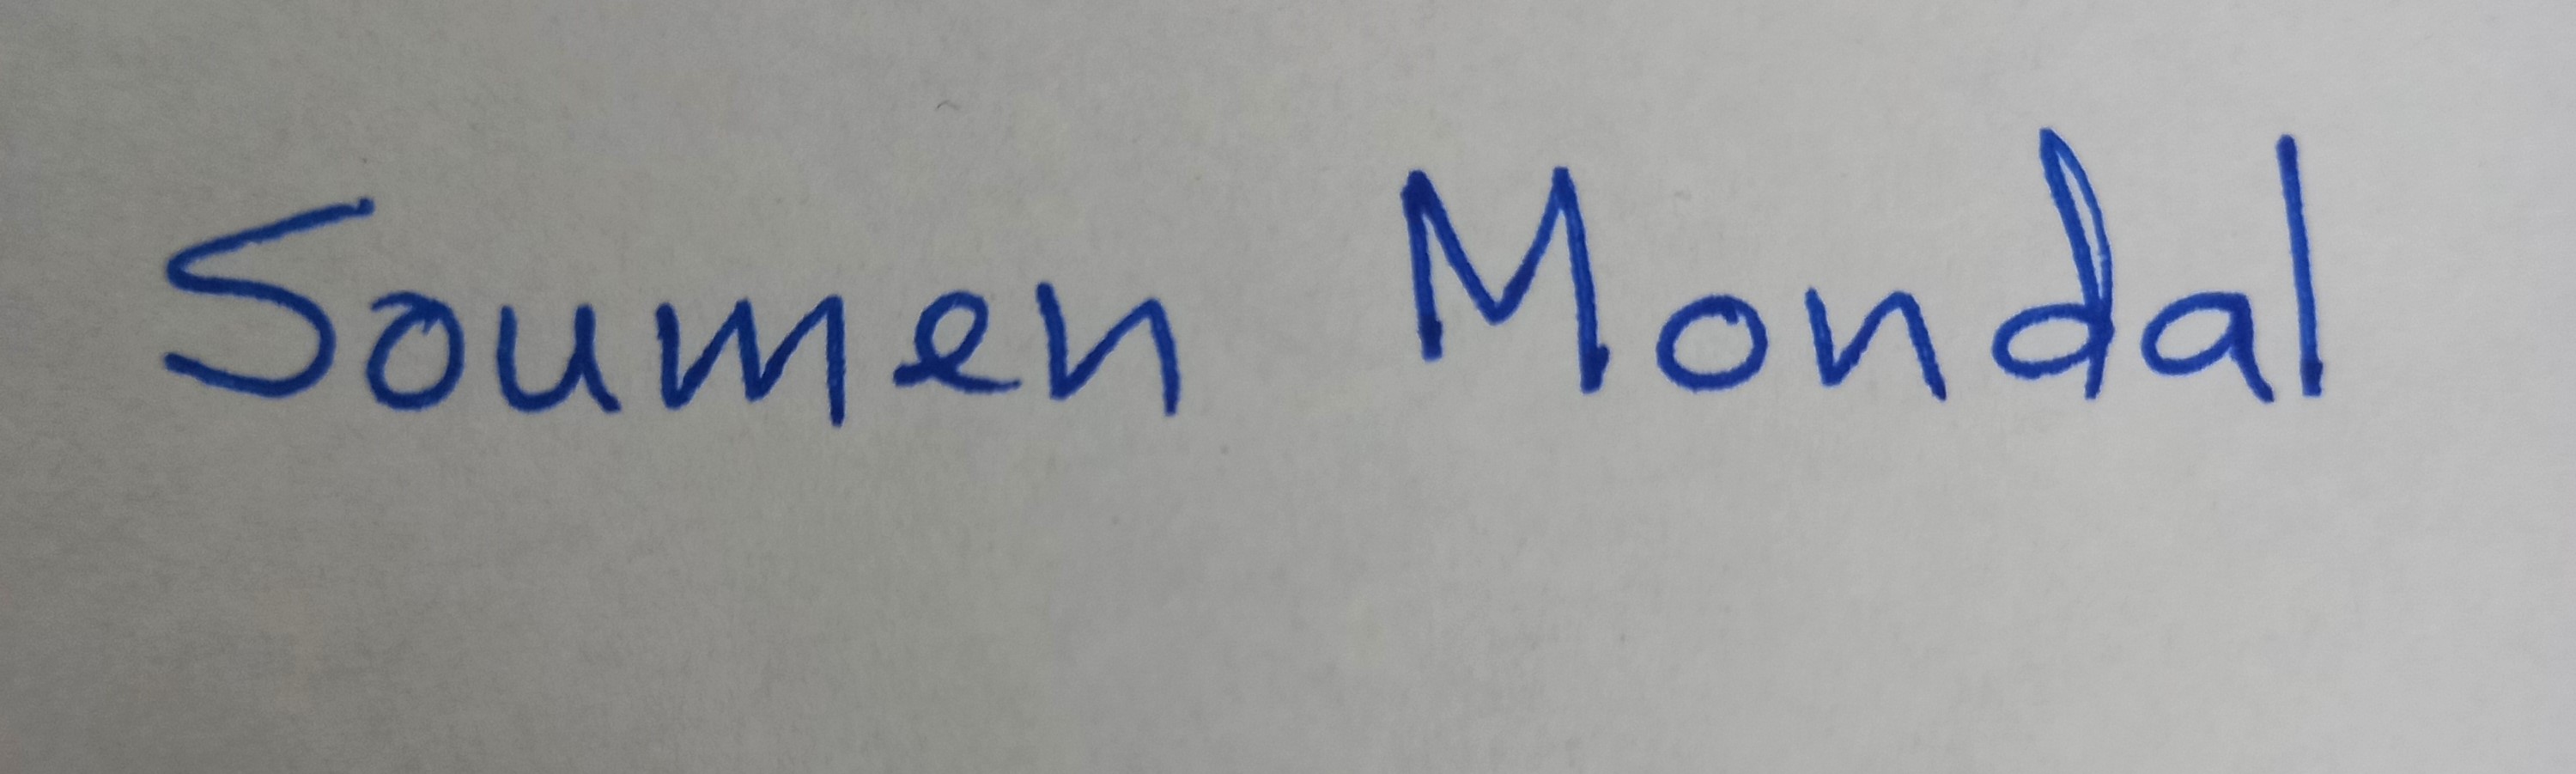 Soumen Mondal